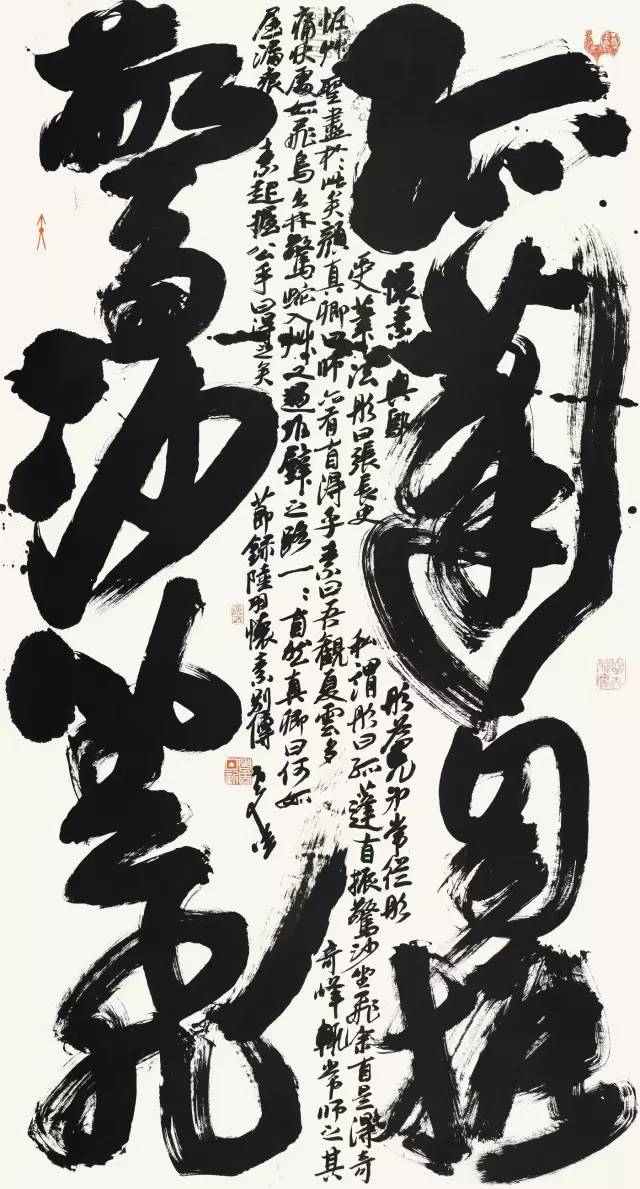 孤蓬自振
驚沙坐飛
懷素與鄔彤為兄弟常從彤
受筆法彤曰張長史私謂彤曰孤蓬自振驚沙坐飛余自是得奇
怪艸聖盡於此矣顏真卿曰師亦有自得乎素曰吾觀夏雲多奇峰輒常師之其
痛快處如飛鳥出林驚蛇入艸又遇坼壁之路一〻自然真卿曰何如
屋漏痕素起握公手曰得之矣節錄陸羽懷素別傳